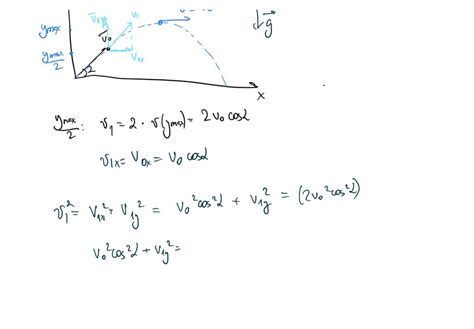 v₁ₓ v₁
g⃗
yₘₐₓ
v⃗₀
yₘₐₓ/2
v₀ₓ
α
x
yₘₐₓ/2 : v₁ = 2 · v(yₘₐₓ) = 2v₀ cosα
v₁ₓ = v₀ₓ = v₀ cosα
v₁² = v₁ₓ² + v₁y² = v₀² cos²α + v₁y² = (2v₀² cos²α)
v₀² cos²α + v₁y² =